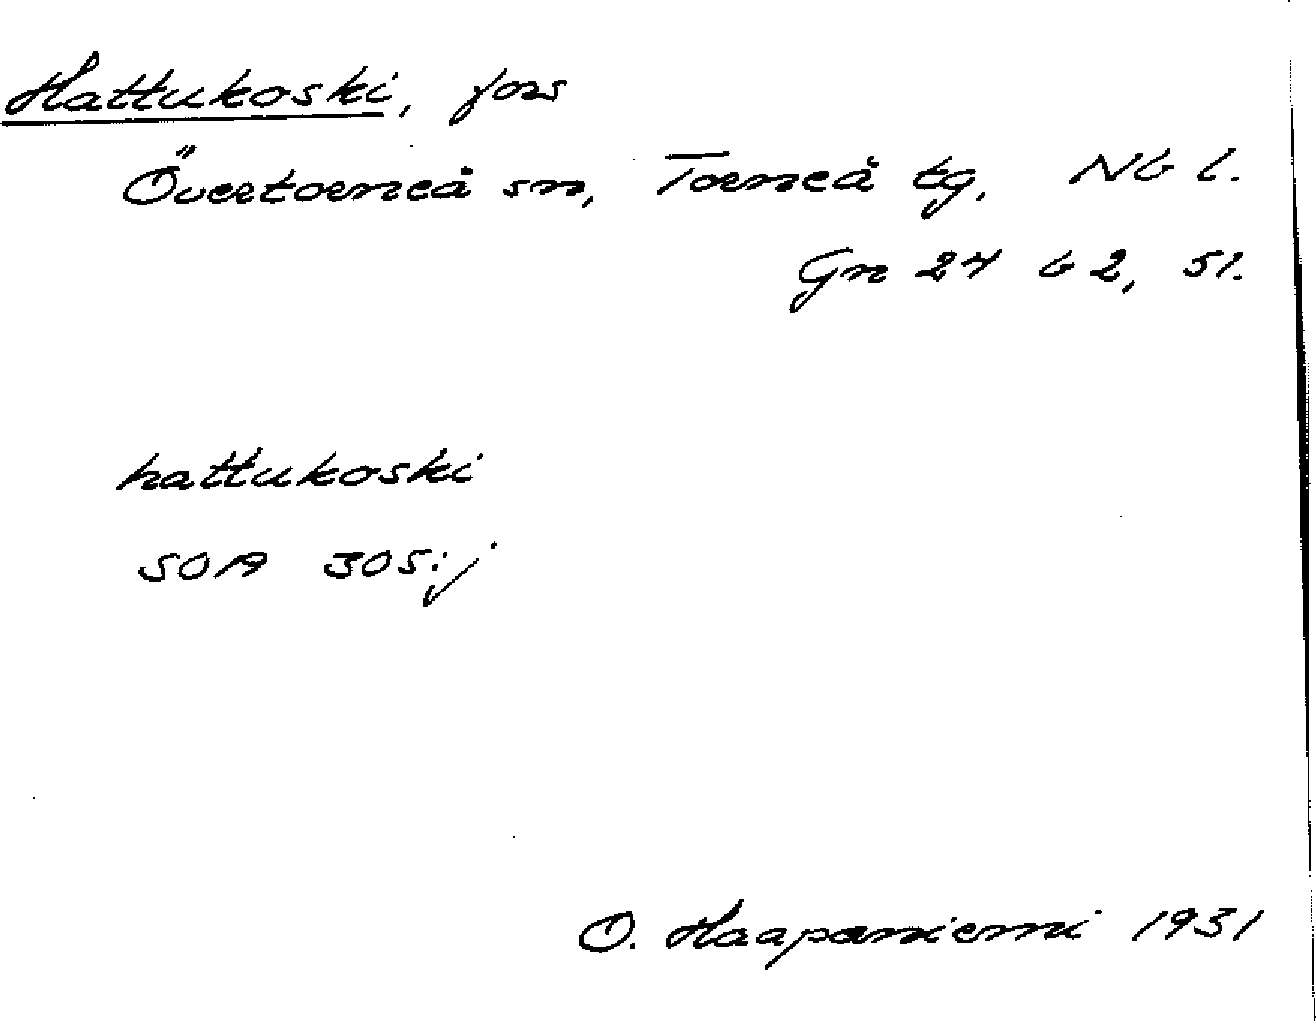 Hattukoski, fors
Övertorneå sn, Torneå tg, Nb l.
Gn 24 b 2, 51.
hattukoski
SOA 305:j
O. Haapaniemi 1931